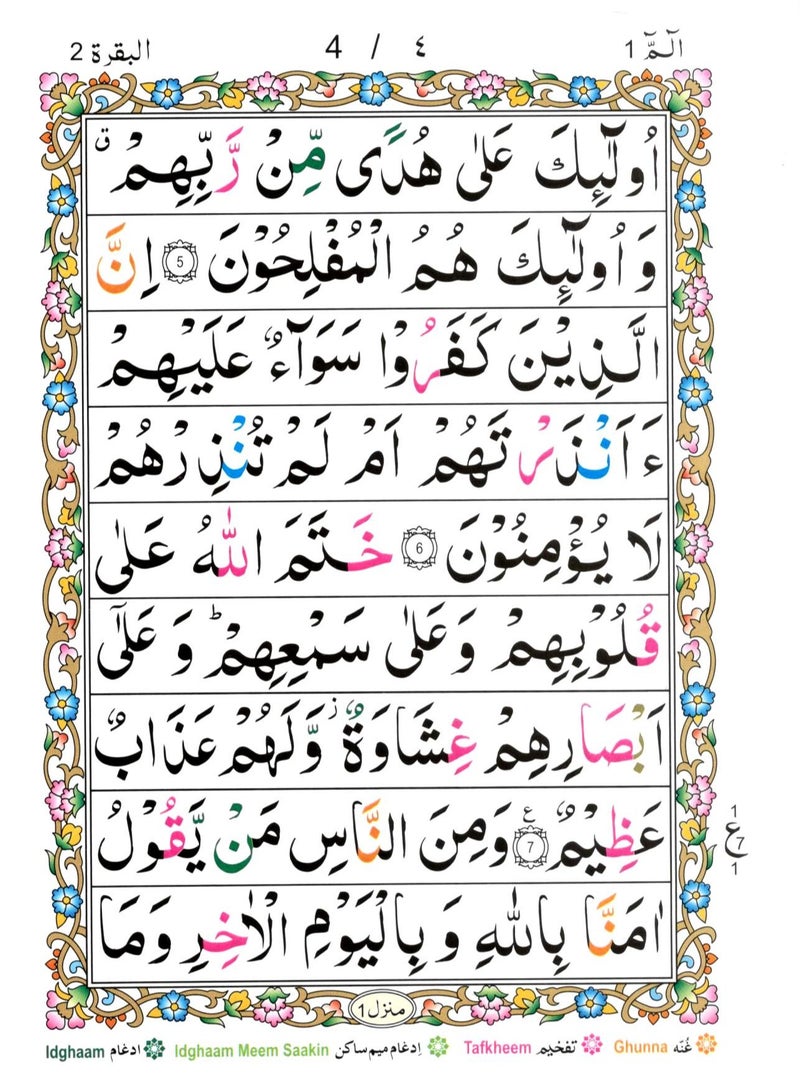 الٓمّٓ 1
4 / ٤
البقرة 2
اُولٰٓئِكَ عَلٰى هُدًى مِّنْ رَّبِّهِمْ ق
وَ اُولٰٓئِكَ هُمُ الْمُفْلِحُوْنَ 5 اِنَّ
الَّذِيْنَ كَفَرُوْا سَوَآءٌ عَلَيْهِمْ
ءَاَنْذَرْتَهُمْ اَمْ لَمْ تُنْذِرْهُمْ
لَا يُؤْمِنُوْنَ 6 خَتَمَ اللّٰهُ عَلٰى
قُلُوْبِهِمْ وَعَلٰى سَمْعِهِمْ ط وَ عَلٰٓى
اَبْصَارِهِمْ غِشَاوَةٌ ز وَّلَهُمْ عَذَابٌ
عَظِيْمٌ 7 ع وَمِنَ النَّاسِ مَنْ يَّقُوْلُ
اٰمَنَّا بِاللّٰهِ وَ بِالْيَوْمِ الْاٰخِرِ وَمَا
1
ع 7
1
منزل 1
غُنّه Ghunna
تفخيم Tafkheem
اِدغام ميم ساكن Idghaam Meem Saakin
ادغام Idghaam